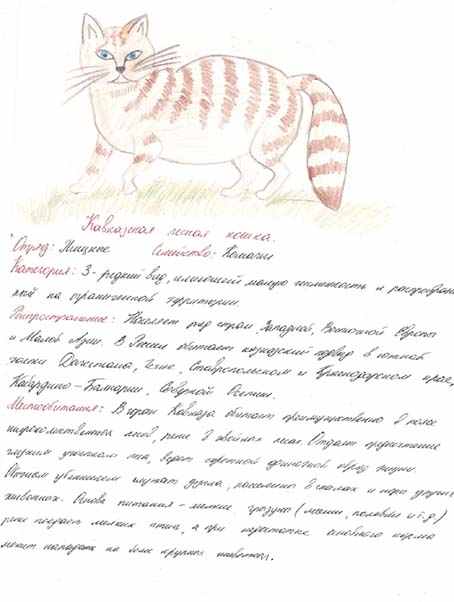 Кавказская лесная кошка.
Отряд: Хищные Семейство: Кошачьи
Категория: 3 - редкий вид, имеющий малую численность и распростра-
на ограниченной территории.
Распространение: Населяет ряд стран Западной, Восточной Европы
и Малой Азии. В России обитает кавказский подвид в южной
части Дагестана, Чечне, Ставропольском и Краснодарском крае,
Кабардино-Балкарии, Северной Осетии.
Местообитания: В горах Кавказа обитает преимущественно в поясе
широколиственных лесов, реже в хвойных лесах. Отдает предпочтение
глухим участкам леса, ведет одиночный образ жизни.
убежищем служат дупла, в скалах и норы других
животных. Основа питания - мелкие грызуны (мыши, полевки и т.д.)
реже поедает мелких птиц, а при недостатке основного корма
может нападать на более крупных животных.